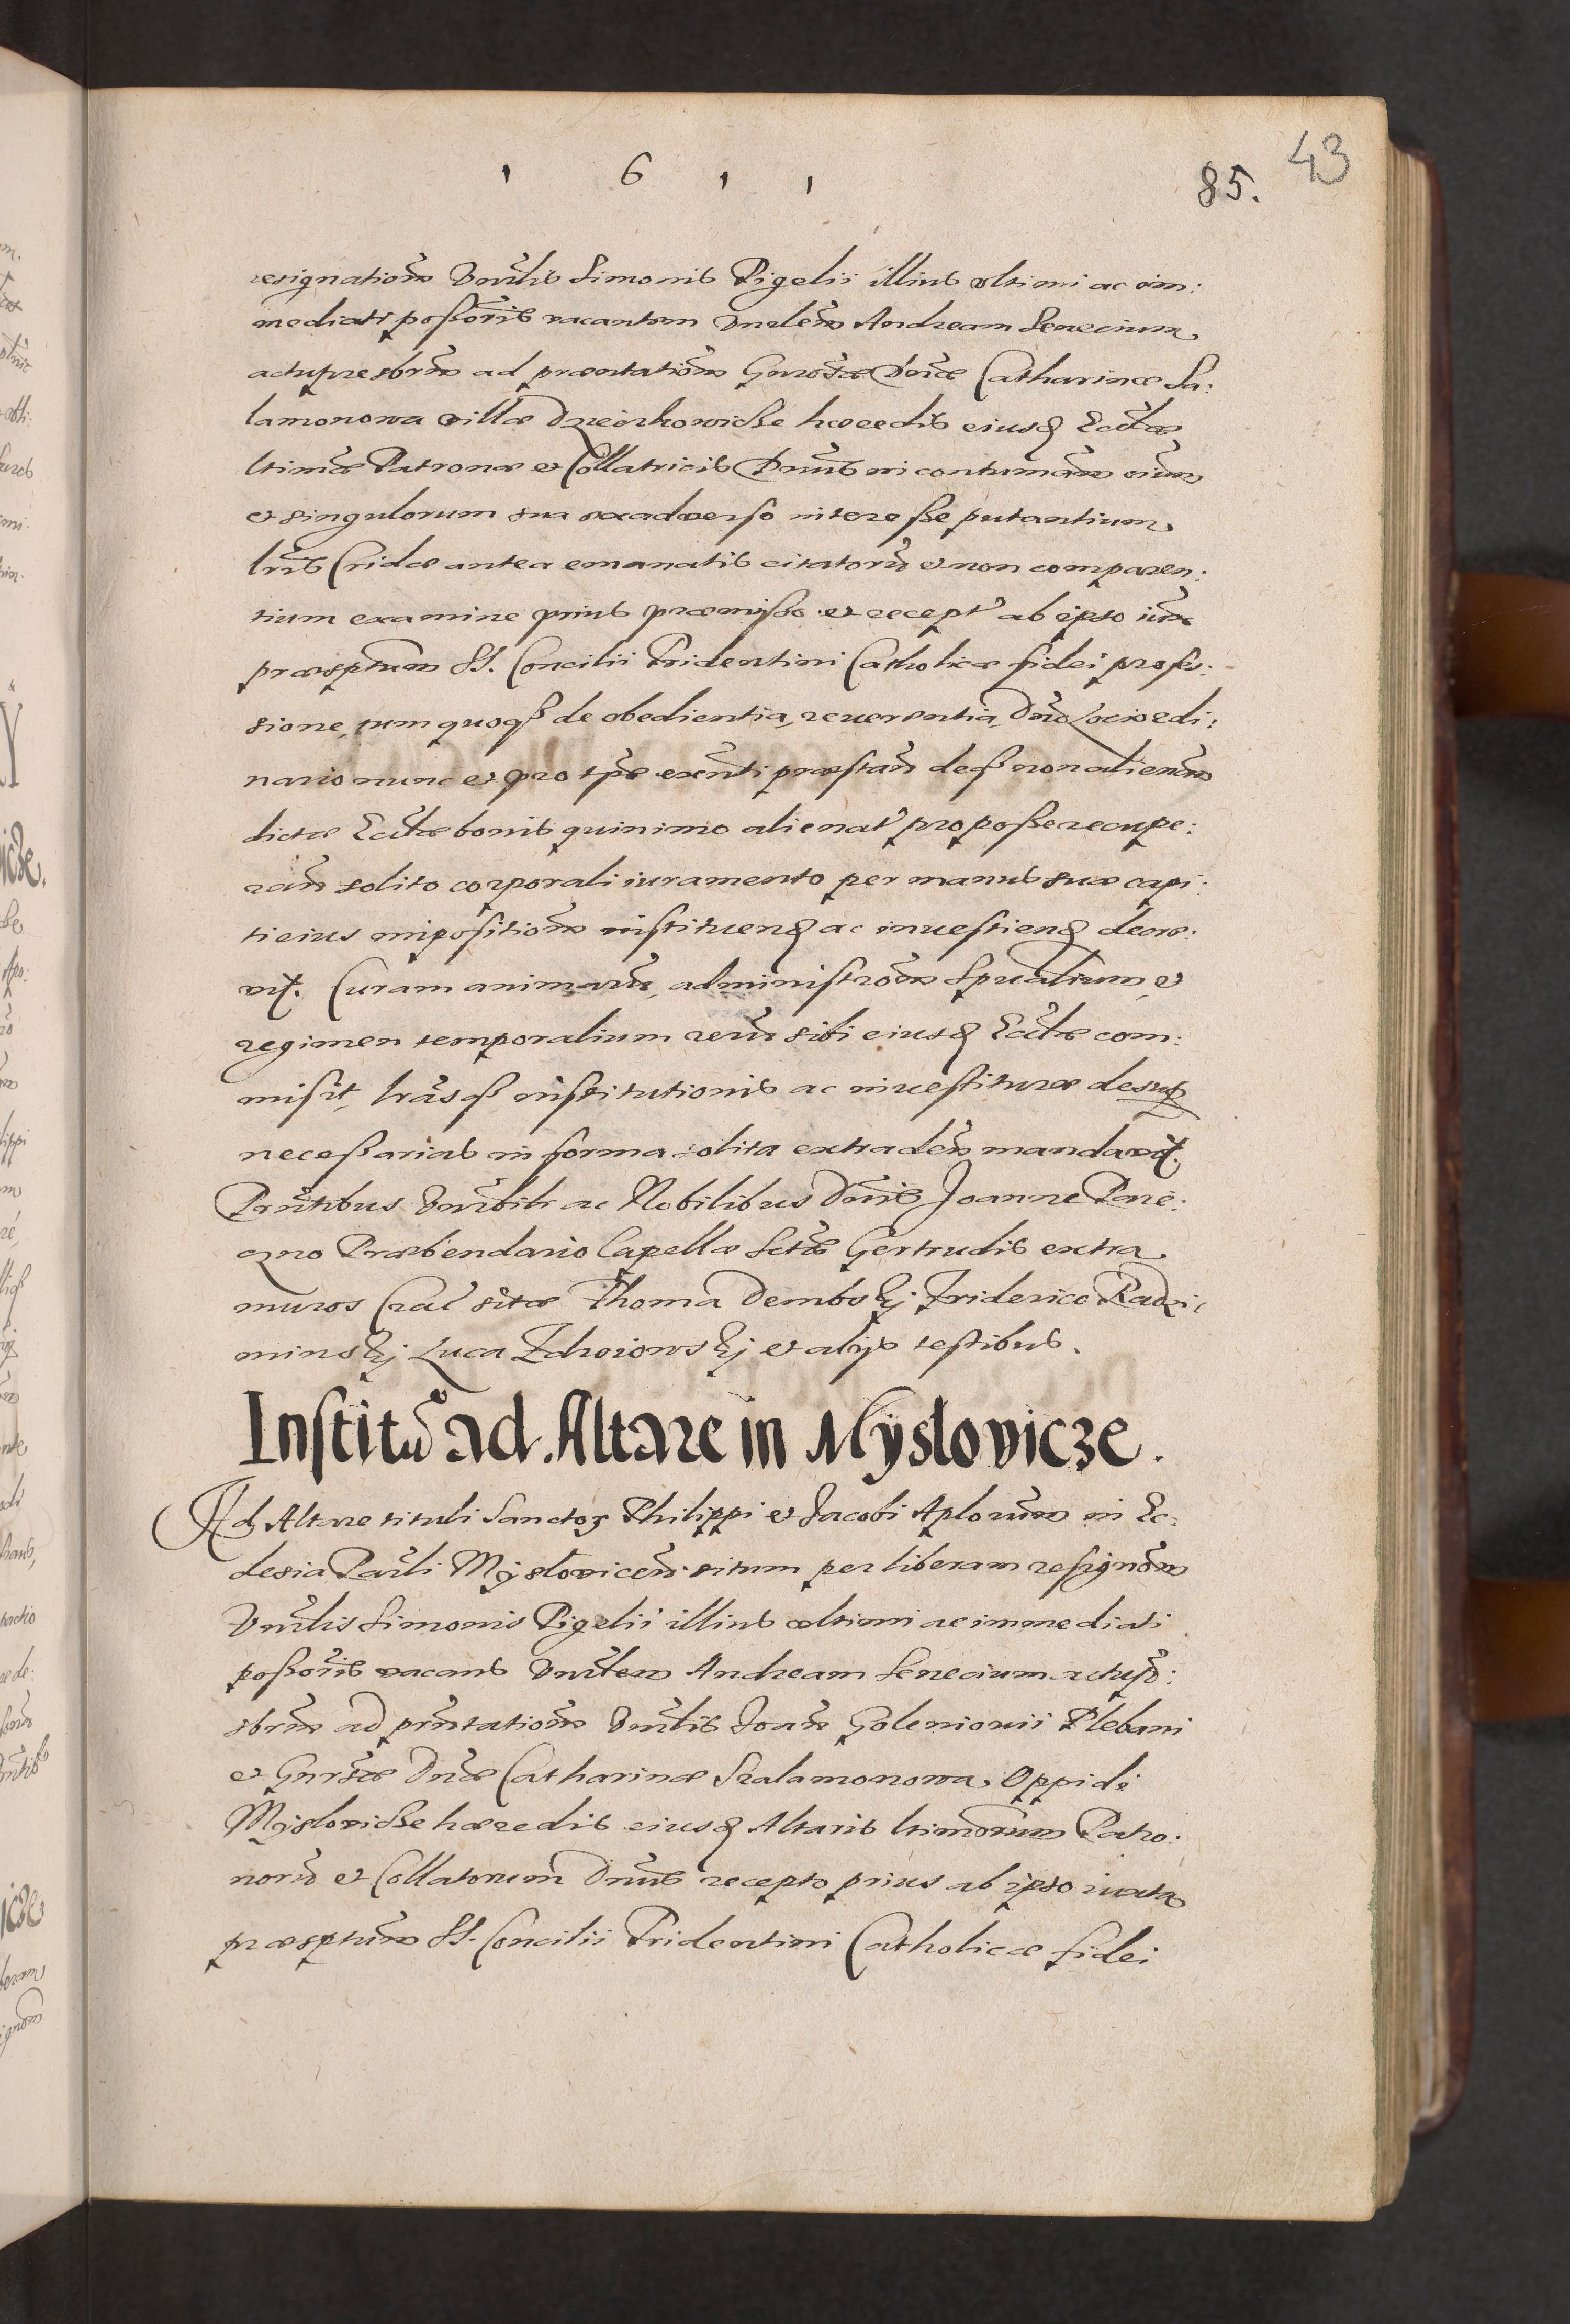 1 6 1 1
85.
43
resignationẽ Vẽnlis Simonis Pigelii illius vltimi ac im:
mediati poßoris vacantem Vnlem Andream Senecium
actu presbrm ad præntationẽ Gnrosæ Dnæ Catharinæ Sa:
lamonowa villæ Dzieckowicße hæredis eiusd Ecclæ
ltimæ Patronæ et Collatricis Dnus in contumam oium
et singulorum sua ex aduerso intereße putantium
lris Cridæ antea emanatis citatorũ et non comparen:
tium examine prius præmißo et recept ab ipso iux
præsptum SS. Concilii Tridentini Catholicæ fidei profes:
sione, tum quoqß de obedientia, reuerentia, Dno Loci ordi:
nario nunc et pro tpe exnti præstan deqß non alienan
dictæ Ecclæ bonis quinimo alienat pro poße recupe:
ran solito corporali iuramento per manus suæ capi:
ti eius impositionẽ instituend ac inuestiend decre:
vit. Curam animarũ, administraõem Spualium, et
regimen temporalium rerũ sibi eiusd Ecclæ com:
misit, lrasqß institutionis ac inuestituræ desup
neceßarias in forma solita extraden mandavit.
Prntibus Vnrbili ac Nobilibus Dnis Joanne Pare:
czno Præbendario Capellæ Sctæ Gertrudis extra
muros Crac sitæ Thoma Dembskj Friderico Radzi:
minskj Luca Zdroiowskj et alijs testibus.
Institũo ad Altare in Myslovicze.
Ad Altare tituli Sanctoꝝ Philippi et Jacobi Aplorum in Ec:
clesia Parli Myslovicen situm per liberam resignõem
Vnrlis Simonis Pigelii illius vltimi ac immediati
poßoris vacans Vnrlem Andream Senecium actu pr:
sbrm ad prntationẽ Vnrlis Joan Goleniouii Plebani
et Gnrsæ Dnæ Catharinæ Skalamonowa Oppidi
Mysloviciße hæredis eiusd Altaris ltimorum Patro:
norũ et Collatorum Dnus recepto prius ab ipso iuxta
præsptum SS. Concilii Tridentini Catholicæ fidei